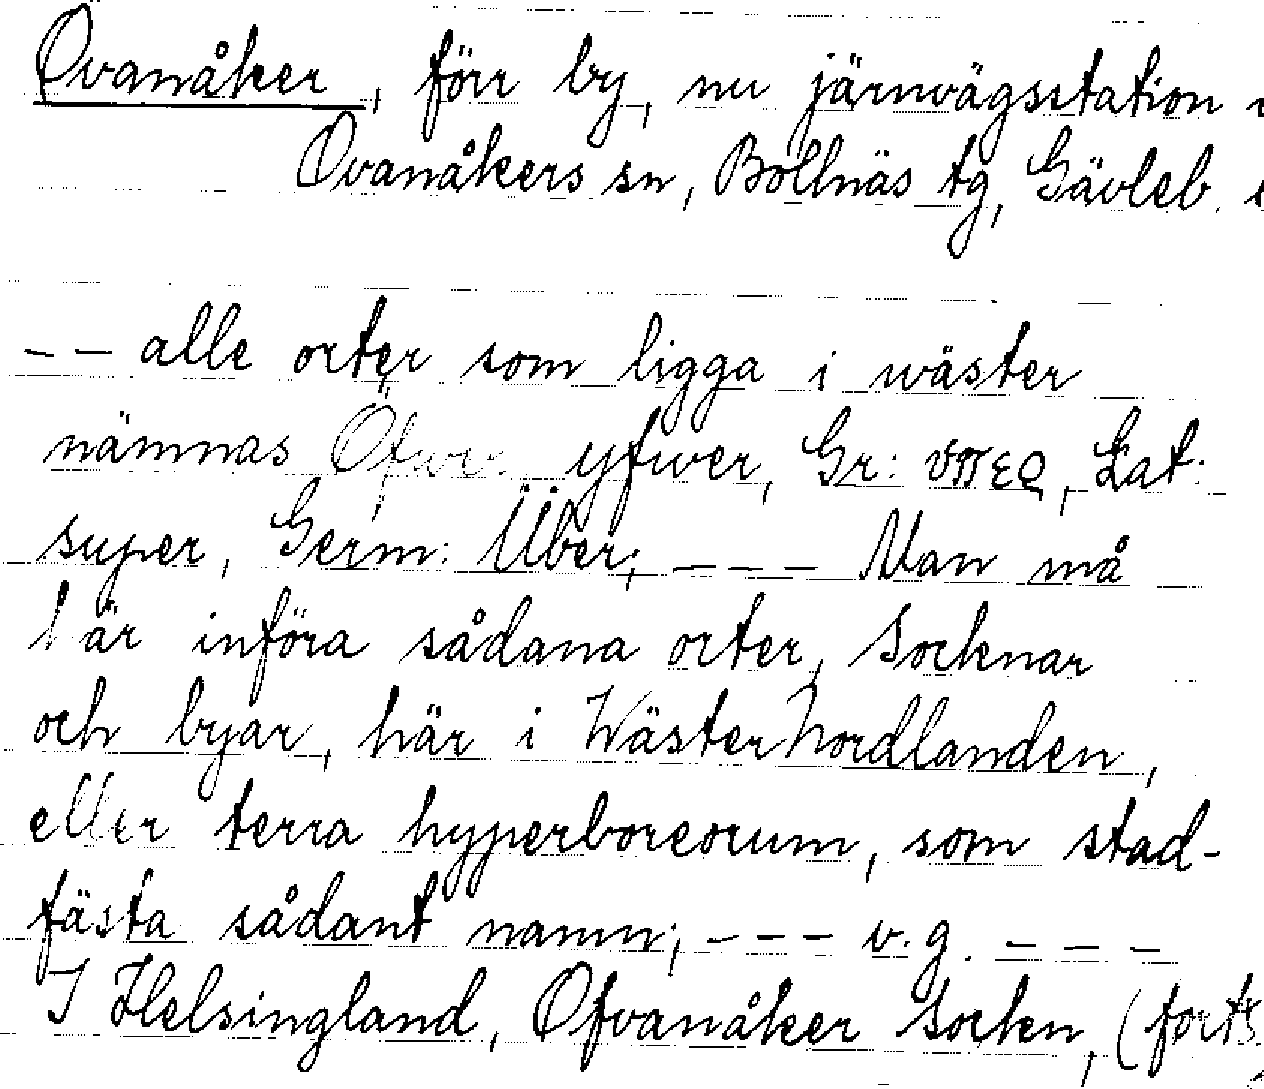 Ovanåker, förr by, nu järnvägsstation
Ovanåkers sn, Bollnäs tg, Gävleb.
-- alle orter som ligga i wäster
nämnas Öfwer yfwer, Gr: υπερ, Lat:
super, Germ: Über; --- Man må
här införa sådana orter, Socknar
och byar, här i WästerNordlanden,
eller terra hyperboreorum, som stad-
fästa sådant namn; --- v.g. ---
I Helsingland, Ofvanåker Socken, (forts